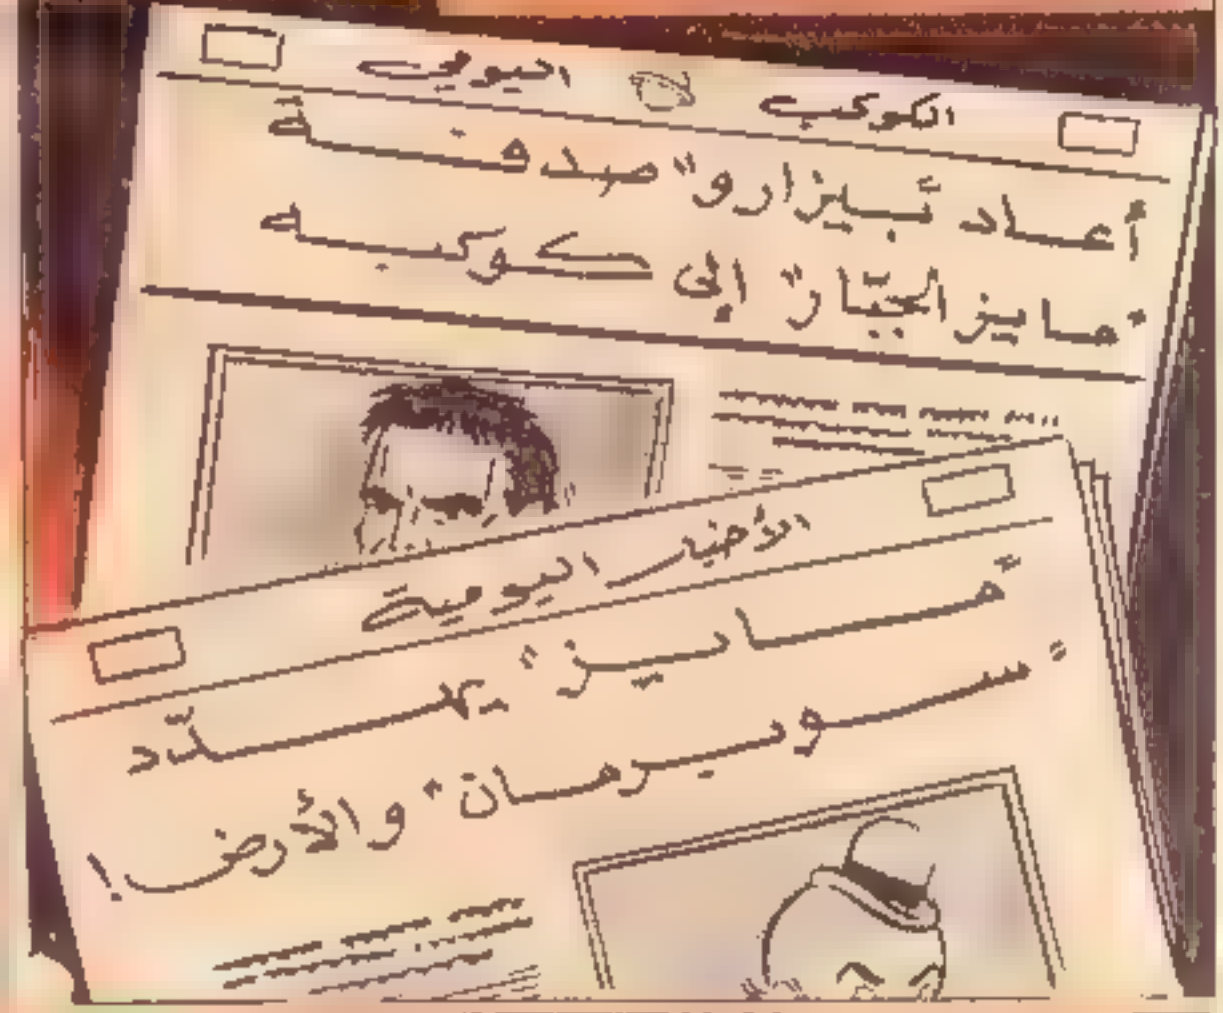 الكوكب اليومي
أعاد "بيزارو" صدفة
"مايز الجبّار" إلى كوكبه
الأخبار اليومية
"مايز" يهدّد
"سوبرمان" والأرض!